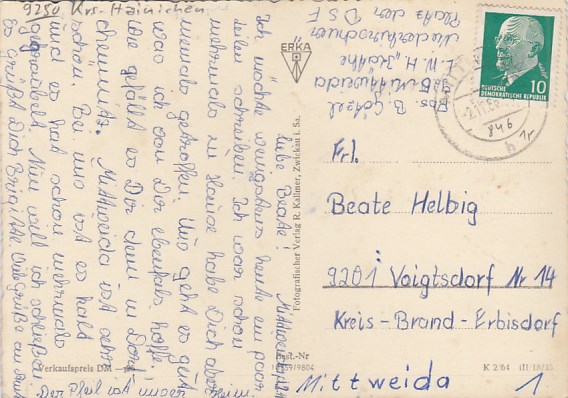 9250 Krs. Hainichen
Abs. B. Götzel
925 Mittweida
L. W. H. "Käthe
Niederkirchner"
Platz der DSF
ERKA
DEUTSCHE
DEMOKRATISCHE REPUBLIK
10
Frl.
Beate Helbig
9201 Voigtsdorf Nr 14
Kreis-Brand-Erbisdorf
Mittweida 1
Liebe Beate!
Ich möchte wenigstens heute ein paar
Zeilen schreiben. Ich war schon
mehrmals zu Hause habe Dich aber
niemals getroffen. Uns geht es gut
was ich von Dir ebenfalls hoffe.
Wie gefällt es Dir denn in
Chemnitz. Mittweida ist sehr
schön. Bei uns ist es kalt
und es hat schon mehrmals
gegraupelt. Nun will ich schließen
es grüßt Dich Brigitte Viele Grüße an
Der Pfeil ist unser
Fotografischer Verlag R. Kallmer, Zwickau i. Sa.
Verkaufspreis DM
Best.-Nr
K 2/64